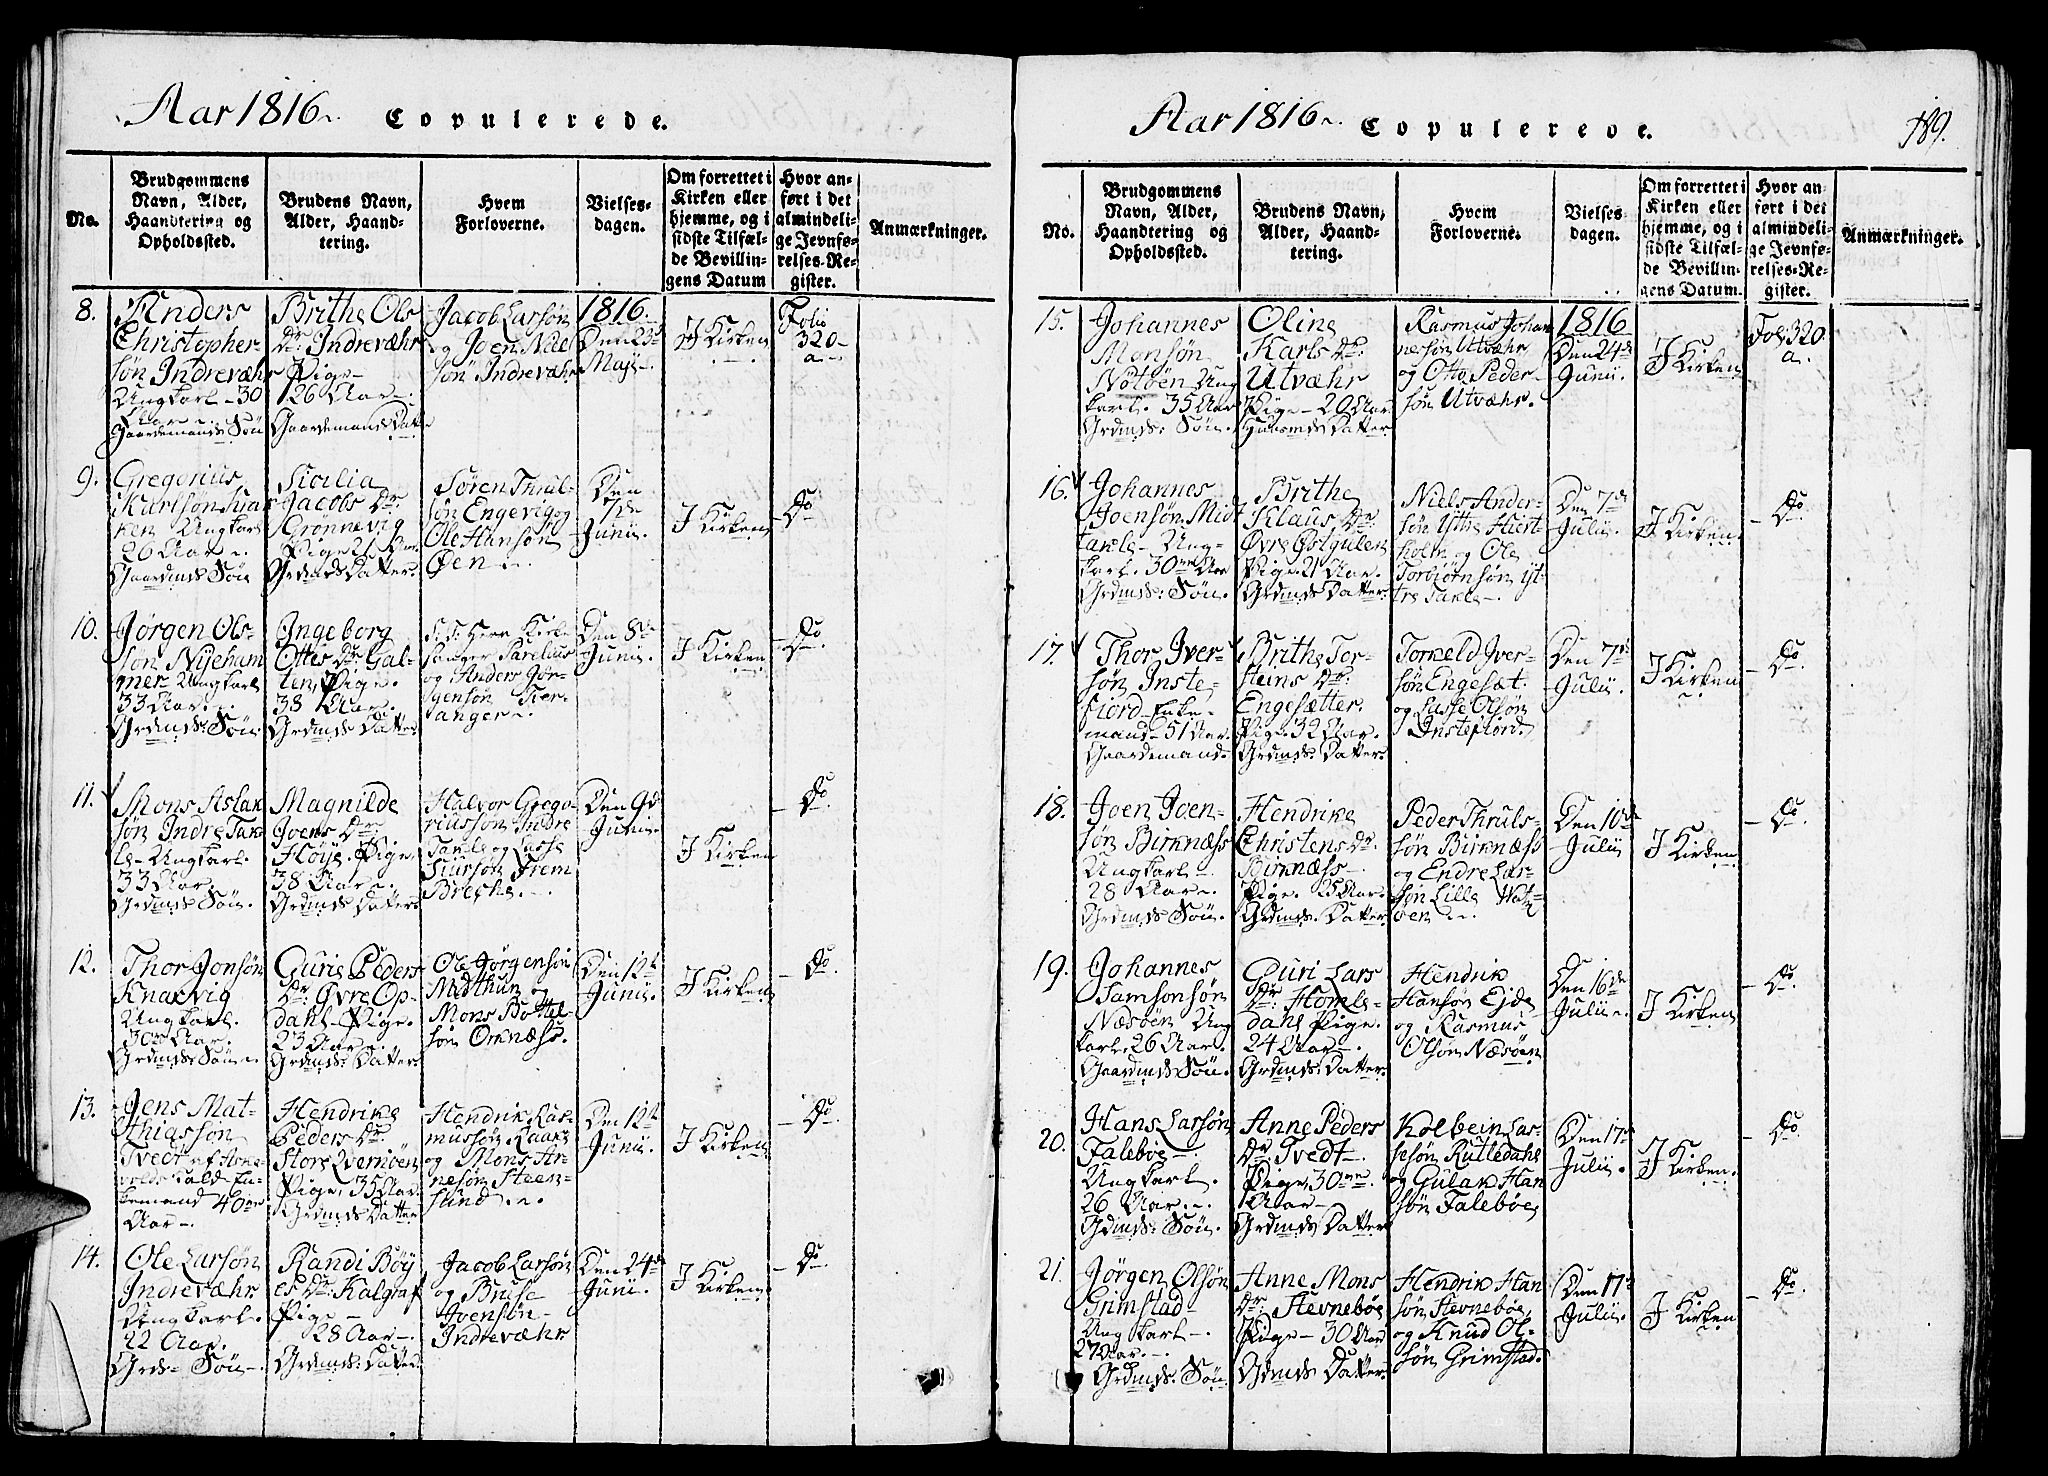 Aar 1816. Copulerede.
No.
Brudgommens
Navn, Alder,
Haandtering og
Opholdssted.
Brudens Navn,
Alder, Haand-
tering.
Hvem
Forloverne.
Vielses-
dagen.
Om forrettet i
Kirken eller
hjemme, og i
sidste Tilfæl-
de Bevillin-
gens Datum
Hvor an-
ført i det
almindeli-
ge Jevnfø-
relses-Re-
gister.
Anmærkninger.
8.
Anders
Christopher-
søn Indrevæhr
Ungkarl - 30
Aar -
Gaardemands Søn
Brithe Ols
Dr. Indrevæhr
Pige -
26 Aar -.
Gaardemans Datter
Jacob Larsøn
og Joen Niel-
søn Indrevæhr
1816.
Den 23d
Maji -.
I Kirken
Folio
320-
a-
9.
Gregorius
Karlsøn
Ungkarl
26 Aar -.
Gaardmds Søn
Sicilia
Jacobs Dr.
Grønnevig
Pige
Grdmds Datter.
Søren Thrul-
søn Engevig og
Ole Hansøn
Øen -.
Den
7de
Junii.
I Kirken
- Do.
10.
Jørgen Ols-
søn Nyeham
mer Ungkarl
33 Aar -.
Grdmds: Søn
Ingeborg
Ottes Dr. Gal-
ten, Pige.
38 Aar.
Grdmds Datter
S. T. Herr Kirke
sanger
og Anders Jør-
gensøn
Den 8de
Junii.
I Kirken
- Do.
11.
Mons Aslak
søn Indre Tak-
le - Ungkarl.
33 Aar
Grdmds Søn.
Magnilde
Joens Dr.
Høije. Pige.
38 Aar -.
Grdmds Datter.
Halvor Grego-
riussøn Indre
Takle og Lasse
Siursøn Frem
Brecke. -.
Den 9d
Junii.
I Kirken
- Do.
12.
Thor Jonsøn
Knarvig
Ungkarl.
30ve Aar.
Grdmds: Søn -.
Gurie Peders
Dr. Øvre Op-
dahl - Pige.
23 Aar -.
Grdmds: Datter.
Ole Jørgensøn
Midthun og
Mons Bottel-
søn Orknæss.
Den 12te
Junii.
I Kirken
- Do.
13.
Jens Mat-
thiassøn
Tvedt af Aske-
volds Kald En-
kemand 40ve
Aar -.
Hendrike
Peders Dr.
Store Qvernøen
Pige, 35 Aar.
Grdmds Datter
Hendrik Ras-
mussøn
og Mons Ar-
nesøn Steen-
sund -.
Den 12te
Junii.
I Kirken.
- Do.
14.
Ole Larsøn
Indrevæhr
Ungkarl.
22 Aar.
Grds- Søn -.
Randi Bøy
es Dr: Kalgraf
Pige -
28 Aar -.
Grdmds: Datter.
Jacob Larsøn
og Bruse
Joensøn -
Indrevæhr
Den 24de
Junii.
I Kirken.
- Do.
Aar 1816. Copulerede.
189.
No.
Brudgommens
Navn, Alder,
Haandtering og
Opholdssted.
Brudens Navn,
Alder, Haand-
tering.
Hvem
Forloverne.
Vielses-
dagen.
Om forrettet i
Kirken eller
hjemme, og i
sidste Tilfæl-
de Bevillin-
gens Datum.
Hvor an-
ført i det
almindeli-
ge Jevnfø-
relses-Re-
gister.
Anmærkninger.
15.
Johannes
Monsøn
Notøen Ung
karl. 35 Aar
Grdmds: Søn.
Oline
Karls Dr.
Utvæhr
Pige - 20 Aar
Huusmds Datter
Rasmus Johan
nesøn Utvæhr
og Otto Peder-
søn Utvæhr.
1816
Den 24de
Junii.
I Kirken
Fol: 320.
a.
16.
Johannes
Joensøn Midt
Takle - Ung-
karl. 30ve Aar
Grdmds: Søn.
Brithe
Klaus Dr.
Øvre Østgulen
Pige. 21 Aar.
Grdmds Datter.
Niels Ander-
søn Ytre Hiert-
holm og Ole
Torbiørnsøn yt-
tre Takle -.
Den 7de
Julii.
I Kirken.
- Do.
17.
Thor Iver-
søn Inste-
fiord - Enke-
mand - 51 Aar.
Gaardemand -
Brithe Tor-
steins Dr.
Engesætter
Pige - 32 Aar.
Grdmds: Datter.
Torkeld Iver-
søn Engesæt
og Lasse Olsøn
Instefiord.
Den 7de
Julii.
I Kirken
- Do.
18.
Joen Joen-
søn Birknæss
Ungkarl -.
28 Aar -.
Grdmds Søn.
Hendrike
Christens Dr.
Birknæss -.
Pige. 25 Aar.
Grdmds. Datter
Peder Thruls-
søn Birknæss
og Endre Lar-
søn Lille Hat-
øen -.
Den 10de
Julii
I Kirken
- Do.
19.
Johannes
Samsonsøn
Næsøen Ung
karl. 26 Aar.
Gaardmds Søn.
Guri Lars
Dr: Homle-
dahl Pige.
24 Aar -.
Grdmds: Datter.
Hendrik
Hansøn Ejde
og Rasmus
Olsøn Næsøen
Den 16de
Julii -.
I Kirken
- Do.
20.
Hans Larsøn
Falebøe -.
Ungkarl.
26 Aar -.
Gdmds: Søn.
Anne Peders
Dr. Tvedt -.
Pige, 30ve
Aar -
Grdmds Datter
Kolbein Las-
sesøn Rutledahl
og Gulak Han
søn Falebøe,
Den 17de
Julii.
I Kirken.
- Do.
21.
Jørgen Olsøn
Grimstad -
Ungkarl -.
27 Aar. -.
Grdmds: Søn.
Anne Mons
Dr: Stevnebøe
Pige - 30 Aar
Gdmds Datter.
Hendrik Han
søn Stevnebøe,
og Knud Ol-
søn Grimstad.
Den 17de
Julii.
I Kirken
- Do.